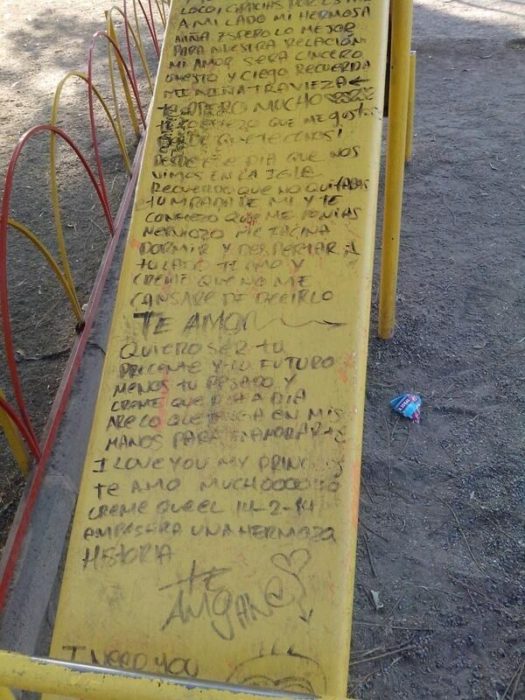 LOCO! GRACIAS POR ESTAR
A MI LADO MI HERMOSA
NIÑA ESPERO LO MEJOR
PARA NUESTRA RELACIÓN
MI AMOR SERA CINCERO
ONESTO Y CIEGO RECUERDA
MI NIÑA TRAVIEZA
TE QUIERO MUCHO
QUE ME GUST
DIA QUE NOS
VIMOS EN LA IGLE
RECUERDO QUE NO QUITABAS
TU MIRADA DE MI Y TE
CONFIEZO QUE ME PONIAS
NERVIOZO
DORMIR Y DESPERTAR A
TU LADO TE AMO Y
CREME QUE NO ME
CANSARE DE DECIRLO
TE AMOR
QUIERO SER TU
PRECENTE Y TU FUTURO
MENOS TU PASADO Y
CREME QUE DIA A DIA
ARE LO QUE TENGA EN MIS
MANOS PARA ENAMORARTE
I LOVE YOU MY PRINCESS
TE AMO MUCHOOOOOO
CREME QUE EL 14-2-14
AMPESERA UNA HERMOZA
HISTORIA
TE
AMO
I NEED YOU